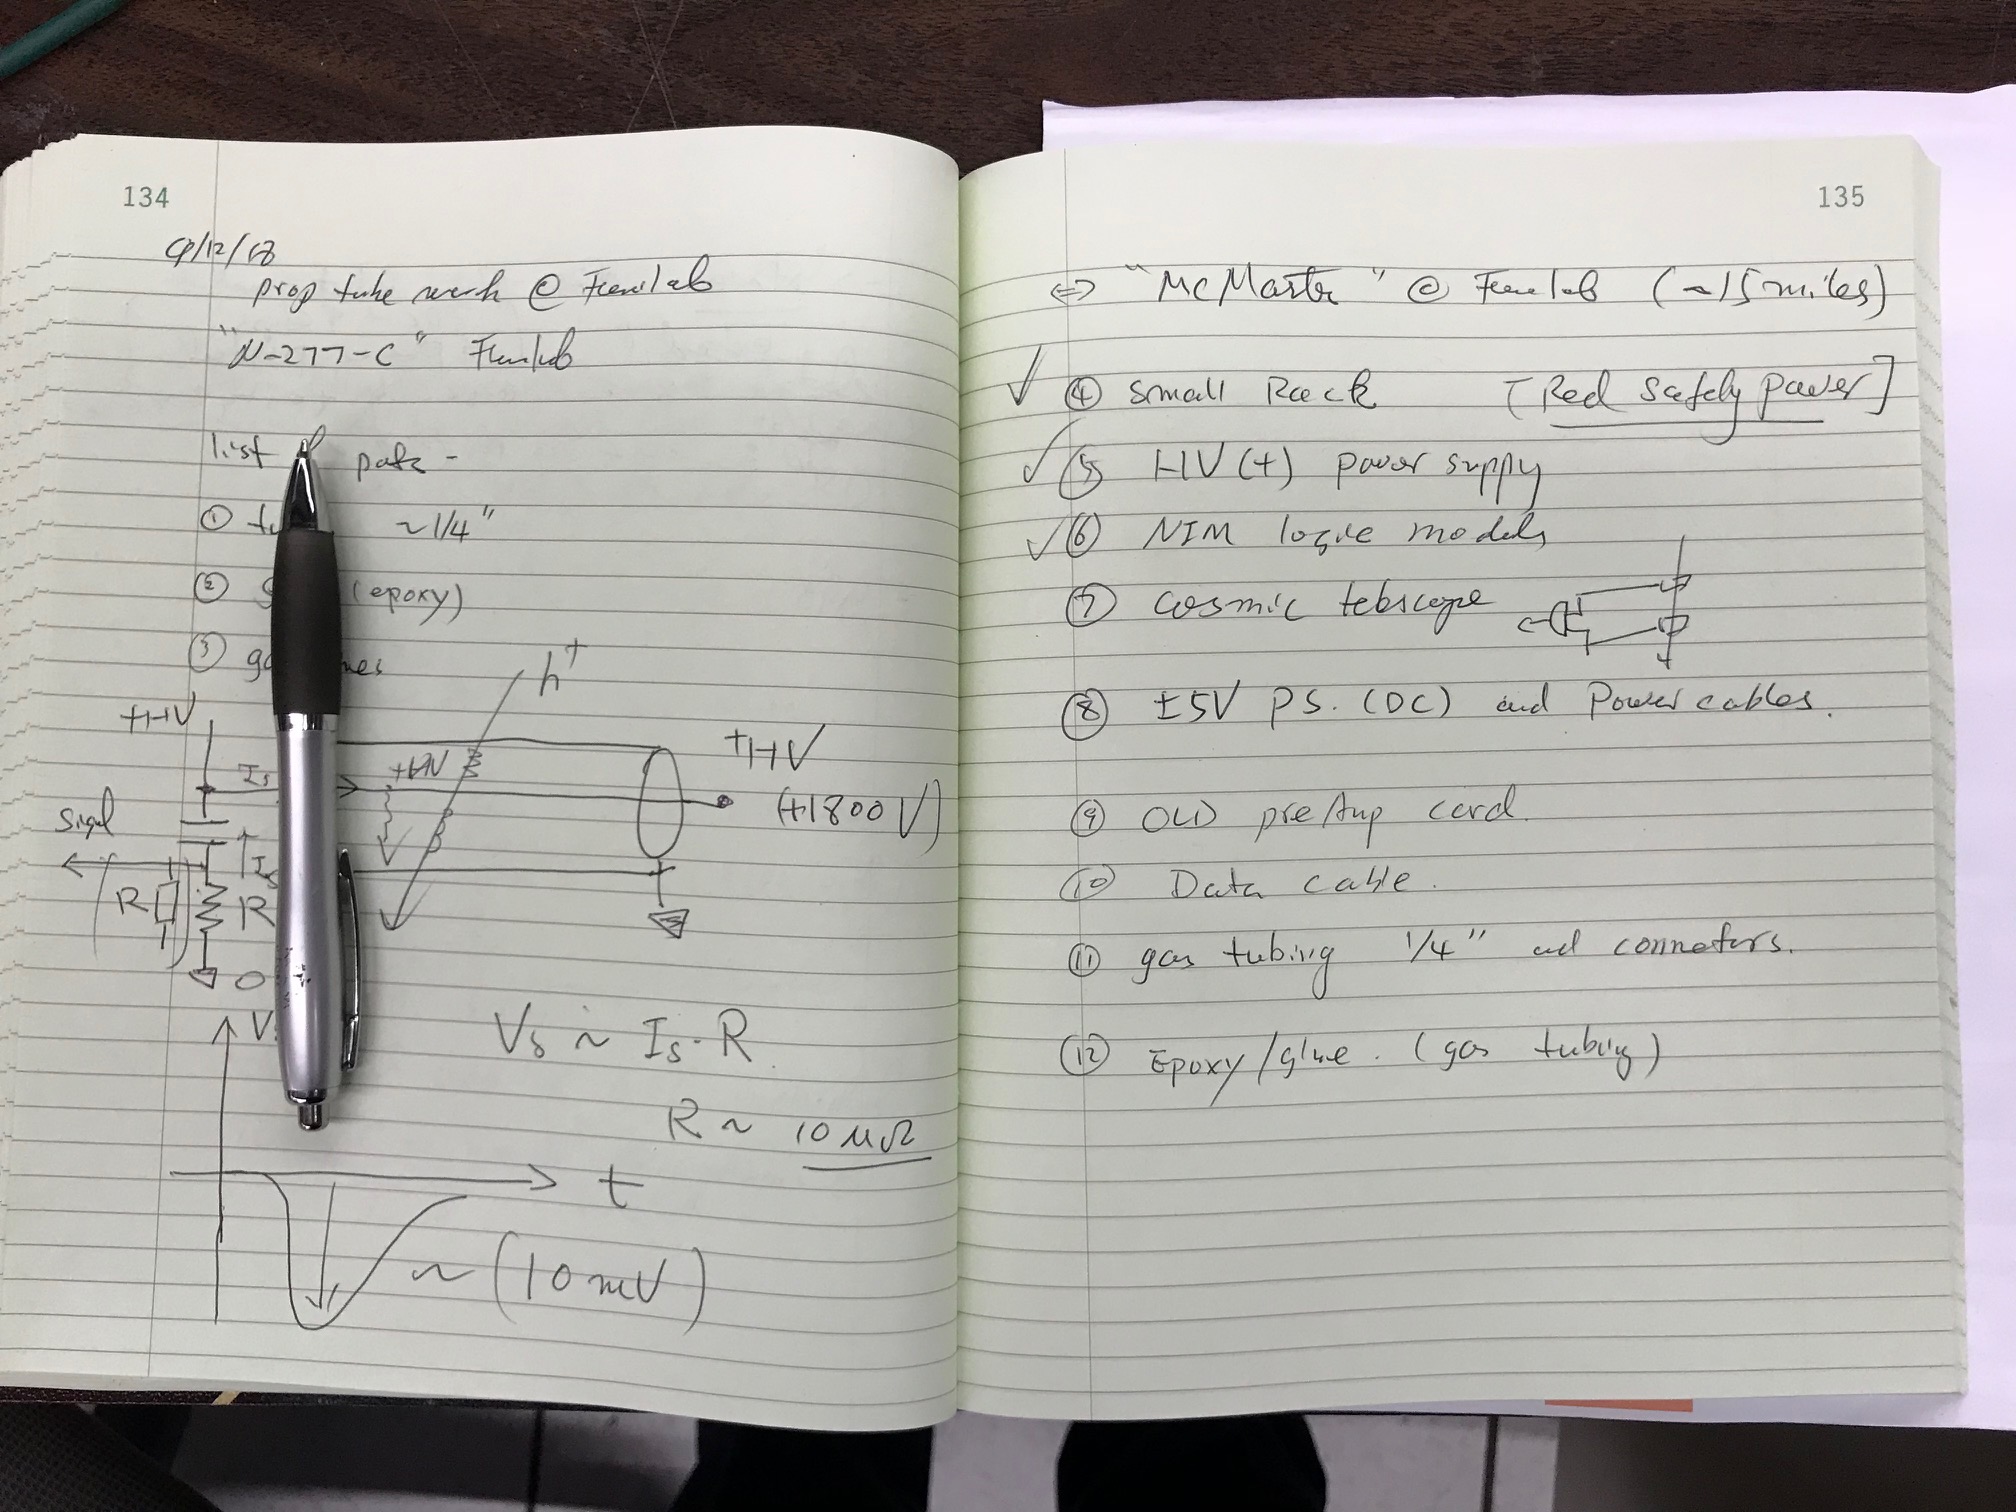 134
prop tube work @ Fermilab
"N-277-C" Fermilab
list parts -
① ~1/4"
② (epoxy)
③
h+
+HV
+HV
+HV
(+1800V)
Is
Signal
Is
R
R
0
V
Vs ~ Is·R
R ~ 10 MΩ
t
~ (10mV)
135
⇔ "McMaster" @ Fermilab (~15 miles)
✓ ④ Small Rack [Red Safety power]
✓ ⑤ HV(+) power supply
✓ ⑥ NIM logic models
⑦ Cosmic telescope
⑧ ±5V PS. (DC) and Power cables.
⑨ OLD pre/Amp card.
⑩ Data cable.
⑪ gas tubing 1/4" and connectors.
⑫ Epoxy/glue. (gas tubing)